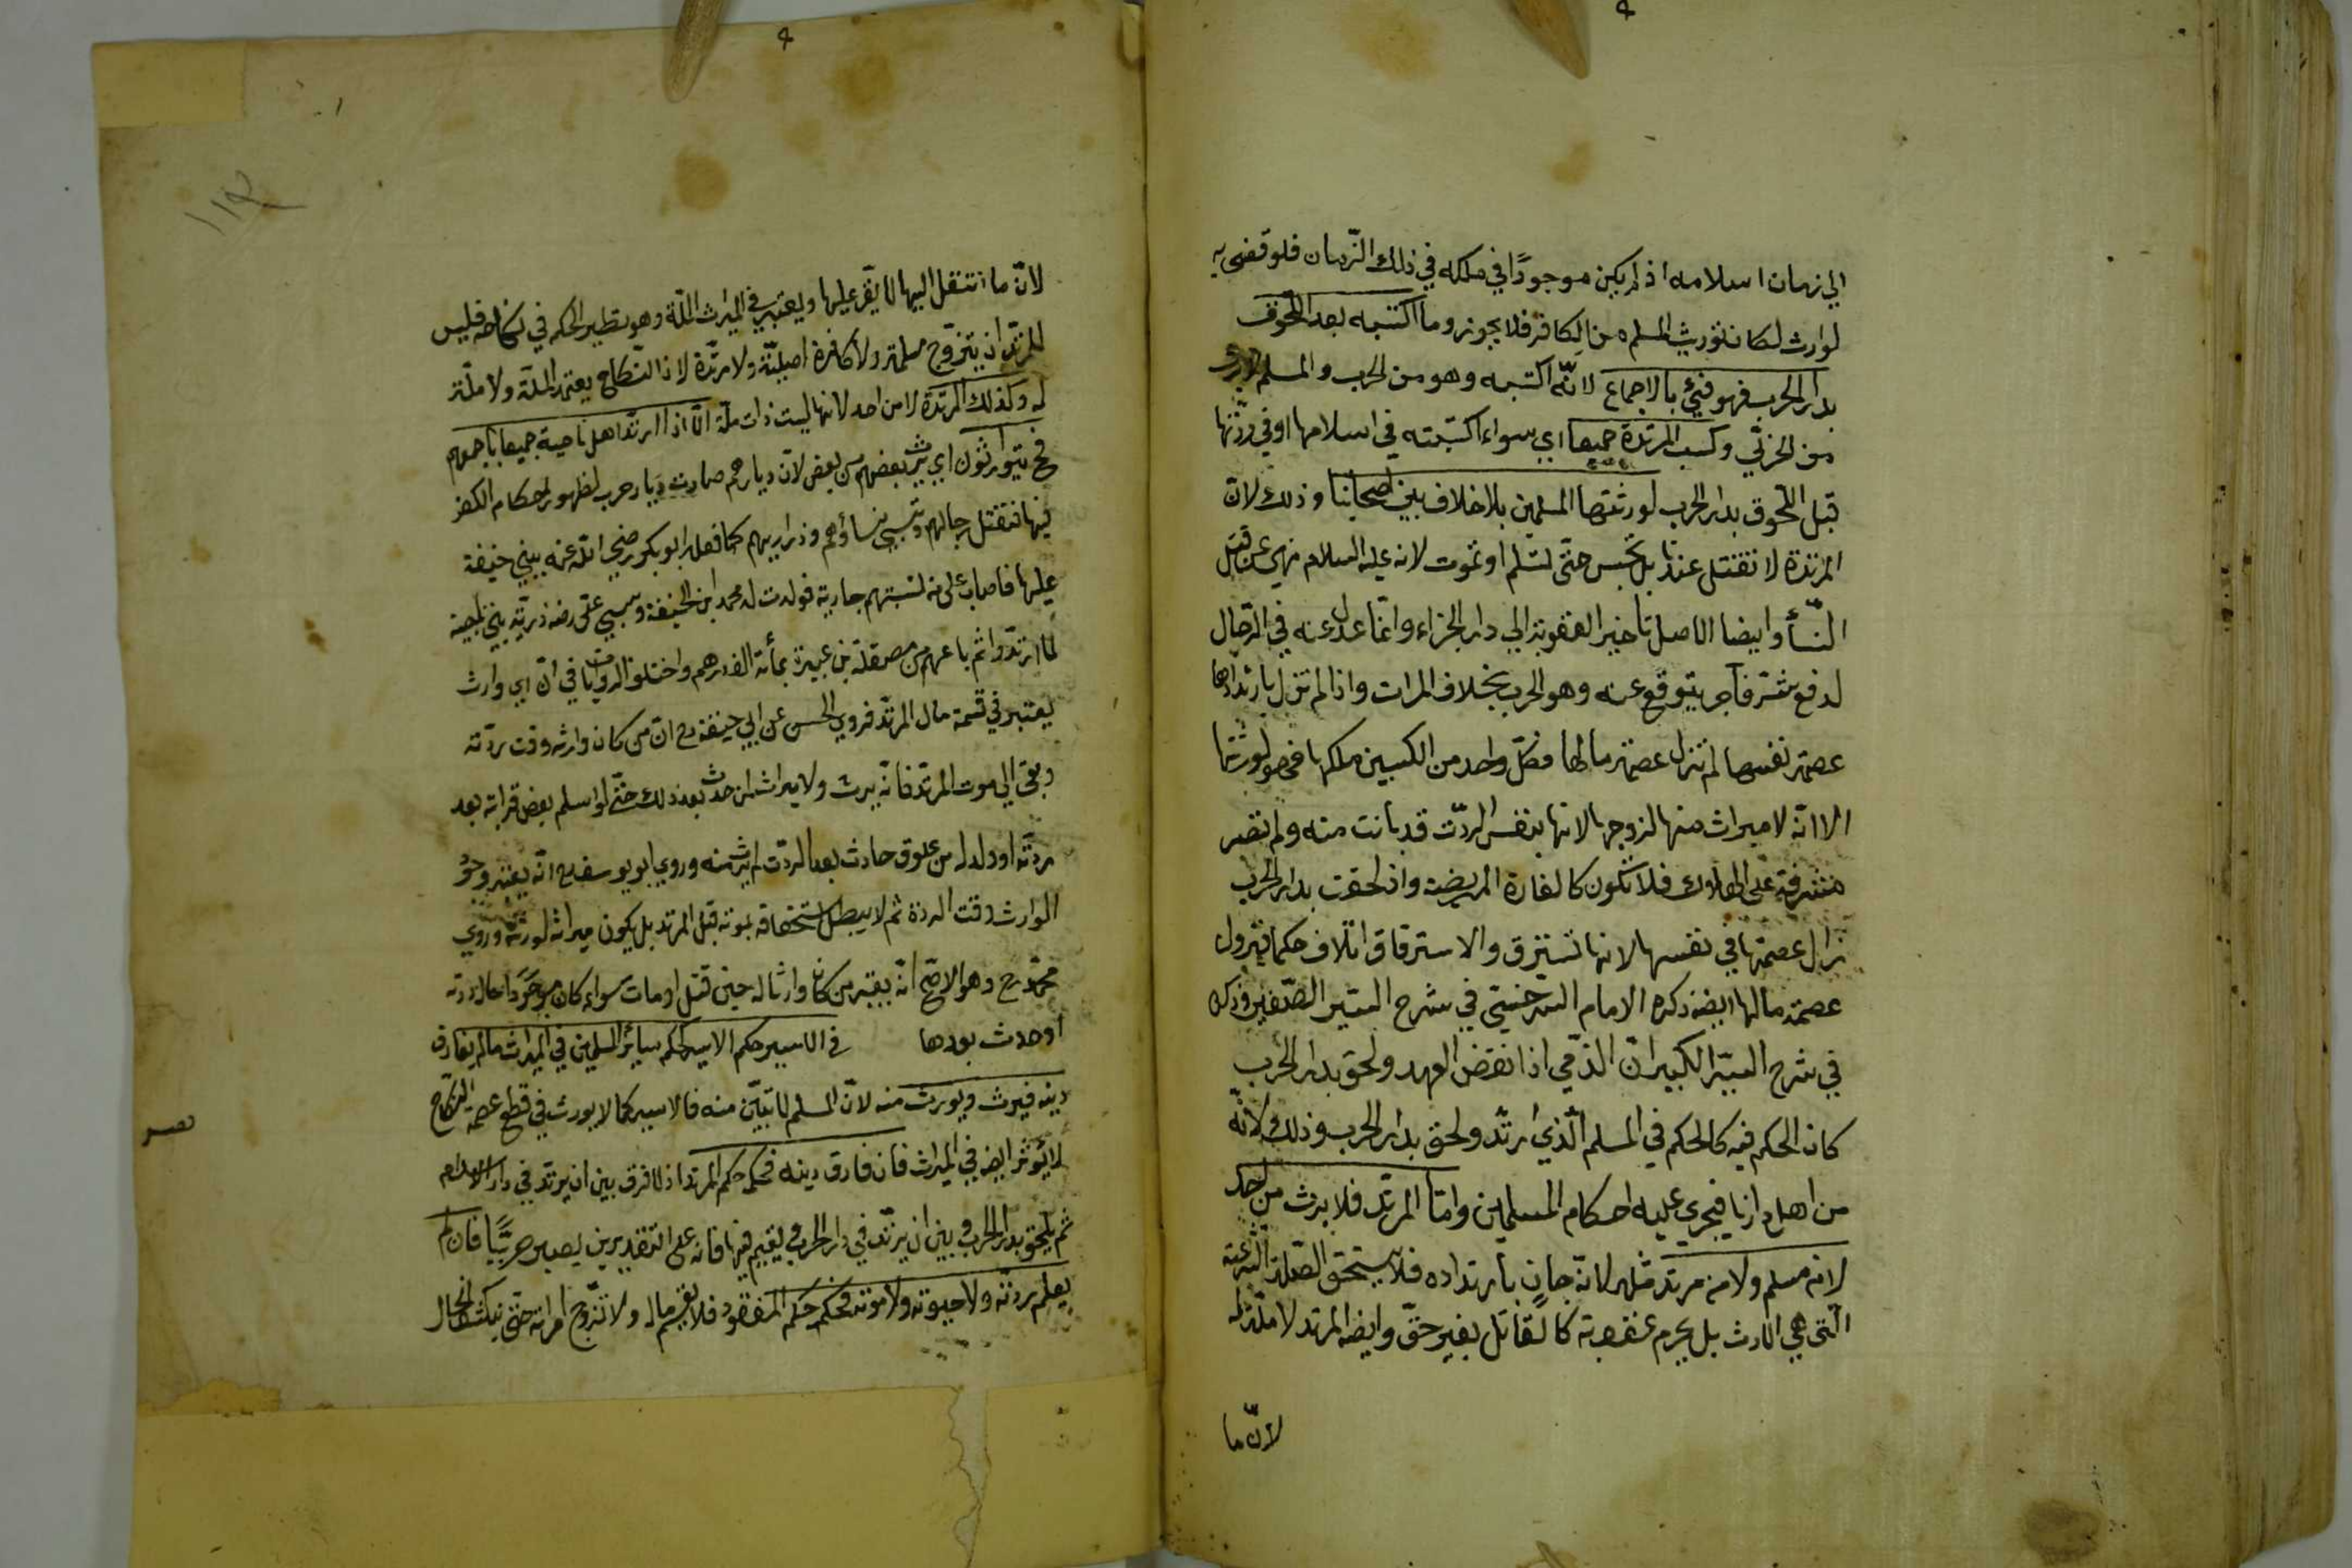 الي زمان اسلامه اذ لم يكن موجودًا في ملكه في ذلك الزّمان فلو قضى به
لوارث لكان توريث المسلم من الكافر فلا يجوز وما اكتسبه بعد اللّحوق
بدار الحرب فهو فيئ بالاجماع لانّه اكتسبه وهو من الحرب والمسلم لا يرث
من الحربي وكسب المرتدة جميعا اي سواء اكتسبته في اسلامها او في ردّتها
قبل اللّحوق بدار الحرب لورثتها المسلمين بلا خلاف بين اصحابنا وذلك لانّ
المرتدة لا تقتل عندنا بل تحبس حتّى تسلم او تموت لانه عليه السلام نهي عن قتل
النّسأ وايضا الاصل تاخير العقوبة الي دار الجزاء وانّما عدل عنه في الرّجال
لدفع شرّ ناجز يتوقع منه وهو الحرب بخلاف المرات واذا لم تزل بارتدادها
عصمة نفسها لم تزل عصمة مالها فكلّ واحد من الكسبين ملكها فهو لورثتها
الا انّه لا ميراث منها لزوجها لانها بنفس الردّت قد بانت منه ولم تصر
مشرفة على الهلاك فلا تكون كالفارة المريضة واذ لحقت بدار الحرب
زال عصمتها في نفسها لانها تسترق والاسترقاق اتلاف حكما فيزول
عصمة مالها ايضه ذكره الامام السّرخسي في شرح السّير الصّغير وذكر
في شرح السيّر الكبير انّ الذّمي اذا نقض العهد ولحق بدار الحرب
كان الحكم فيه كالحكم في المسلم الّذي ارتّد ولحق بدار الحرب وذلك لانّه
من اهل دارنا فيجري عليه احكام المسلمين وامّا المرتّد فلا يرث من احد
لا من مسلم ولا من مرتد مثله لانّه جانٍ بارتداده فلا يستحق الصّلة الشّرعية
الّتي هي الارث بل يحرم عقوبة كالقاتل بغير حقّ وايضه المرتد لا ملّة له
لانّ ما
١١٢
لانّ ما انتقل اليها لا يقّر عليها ويعتبر في الميراث الملّة وهو نظير الحكم في نكاحه فليس
للمرتّد ان يتزوّج مسلمة ولا كافرة اصليّة ولا مرتدّة لان النّكاح يعتمد الملّة ولا ملّة
له وكذلك المرتدّة لا من احد لانها ليست ذات ملّة الّا اذا ارتدّ اهل ناحية جميعا باجمعهم
فح يتوارثون اي يرث بعضهم من بعض لانّ ديارهم صارت ديار حرب لظهور احكام الكفر
فيها فتقتل رجالهم وتسبى نساؤهم وذراريهم كما فعله ابو بكر رضي اللّه عنه ببني حنيفة
عليها فاصاب على من نسبتهم جارية فولدت له محمد ابن الحنيفة وسبي علّى رضه ذريّة بني ناجية
لما ارتدّوا ثم باعهم من مصقلة بن عبيرة بمأتة الف درهم واختلف الروايات في انّ اي وارث
يعتبر في قسمة مال المرتدّ فروي الحسن عن ابي حنيفة رح انّ من كان وارثه وقت ردّته
وبقى الي موت المرتدّ فانّه يرث ولا ميراث لمن حدث بعد ذلك حتّى لو اسلم بعض قرابته بعد
ردّته او ولد له من علوق حادث بعد الردّت لم يرث منه وروي ابو يوسف رح انّه يعتبر وجود
الوارث وقت الردّة ثم لا يبطل استحقاقه بموته قبل المرتد بل يكون ميراثه لورثته وروي
محمّد رح وهو الاصّح انّه يعتبر من كان وارثا له حين قتل او مات سواء كان موجودًا حال ردته
او حدث بعدها في الاسير حكم الاسير كحكم سائر المسلمين في الميراث مالم يفارق
دينه فيرث ويورث منه لانّ المسلم لا تبيّن منه فالاسير كما لا يورث في قطع عصمة النّكاح
لا يؤثر ايضه في الميراث فان فارق دينه فحكمه حكم المرتد اذ لا فرق بين ان يرتد في دار الاسلام
ثم يلحق بدار الحرب وبين ان يرتّد في دار الحرب ويقيم فيها فانه على التقديرين يصير حربيًّا فان لم
يعلم ردّته ولا حيوته ولا موته فحكمه حكم المفقود فلا يقسم ماله ولا تزّوج امراته حتّى ينكشف الحال